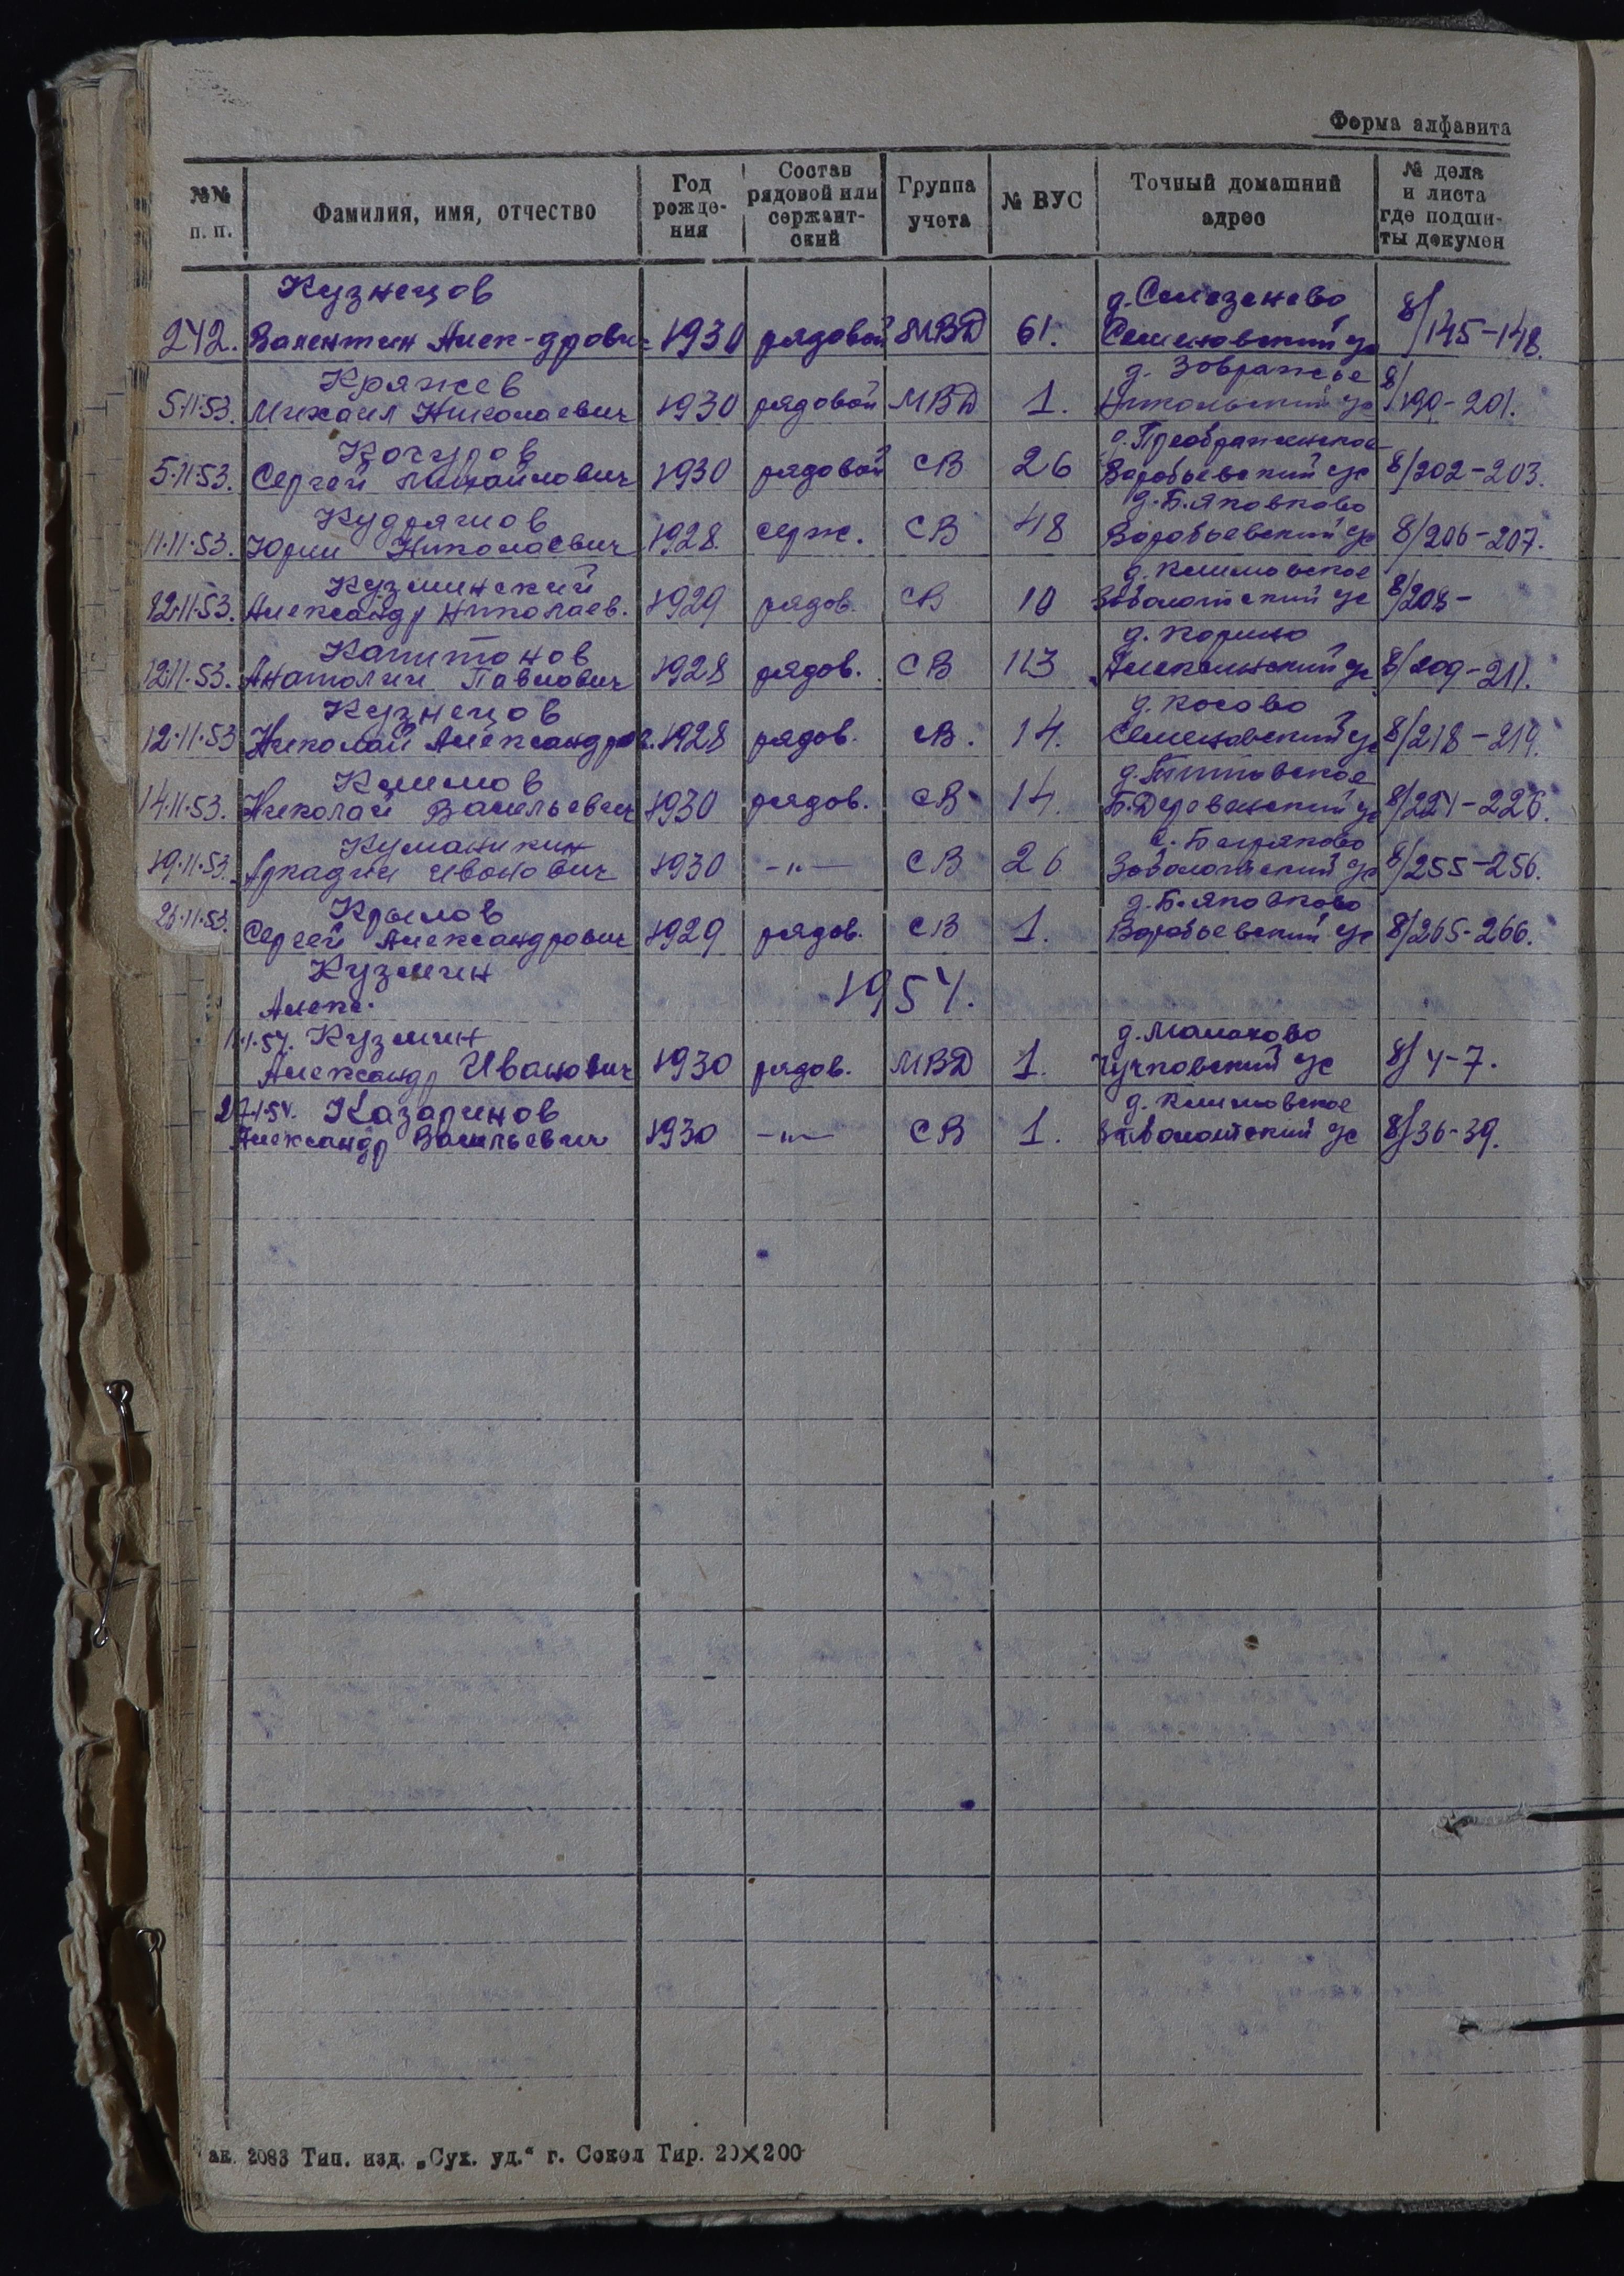 Форма алфавита
№№ п. п.
Фамилия, имя, отчество
Год рожде-ния
Состав рядовой или сержант-ский
Группа учета
№ ВУС
Точный домашний адрес
№ дела и листа где подши-ты докумен
Кузнецов д. Селезенево
242. Валентин Алек-дрович 1930 рядовой МВД 61. Семеновский ус 8/145-148.
Кряжев д. Зовражье
5.11.53. Михаил Николаевич 1930 рядовой МВД 1. Никольский ус 8/190-201.
Кочуров д. Преображенское
5.11.53. Сергей Михайлович 1930 рядовой СВ 26 Воробьевский ус 8/202-203.
Кудряшов д. Б. Яковково
11.11.53. Юрий Николаевич 1928 серж. СВ 48 Воробьевский ус 8/206-207.
Кузминский д. Климовское
12.11.53. Александр Николаев. 1929 рядов. СВ 10 Заболотский ус 8/208-
Капитонов д. Корино
12.11.53. Анатолий Павлович 1928 рядов. СВ 113 8/209-211.
Кузнецов д. Косово
12.11.53 Николай Александров. 1928 рядов. СВ. 14. Семеновский ус 8/218-219.
Климов д.
14.11.53. Николай Васильевич 1930 рядов. СВ 14. Б. Деревенский ус 8/224-226.
Куманикин
19.11.53. Аркадий Иванович 1930 -"- СВ 26 Заболотский ус 8/255-256.
Крылов д. Б. Яковково
26.11.53. Сергей Александрович 1929 рядов. СВ 1. Воробьевский ус 8/265-266.
Кузмин
Алекс. 1954.
11.1.54. Кузмин д. Малахово
Александр Иванович 1930 рядов. МВД 1. Чучковский ус 8/4-7.
27.1.54. Казаринов д. Климовское
Александр Васильевич 1930 -"- СВ 1. Заболотский ус 8/36-39.
ак. 2083 Тип. изд. „Сух. уд." г. Сокол Тир. 20×200